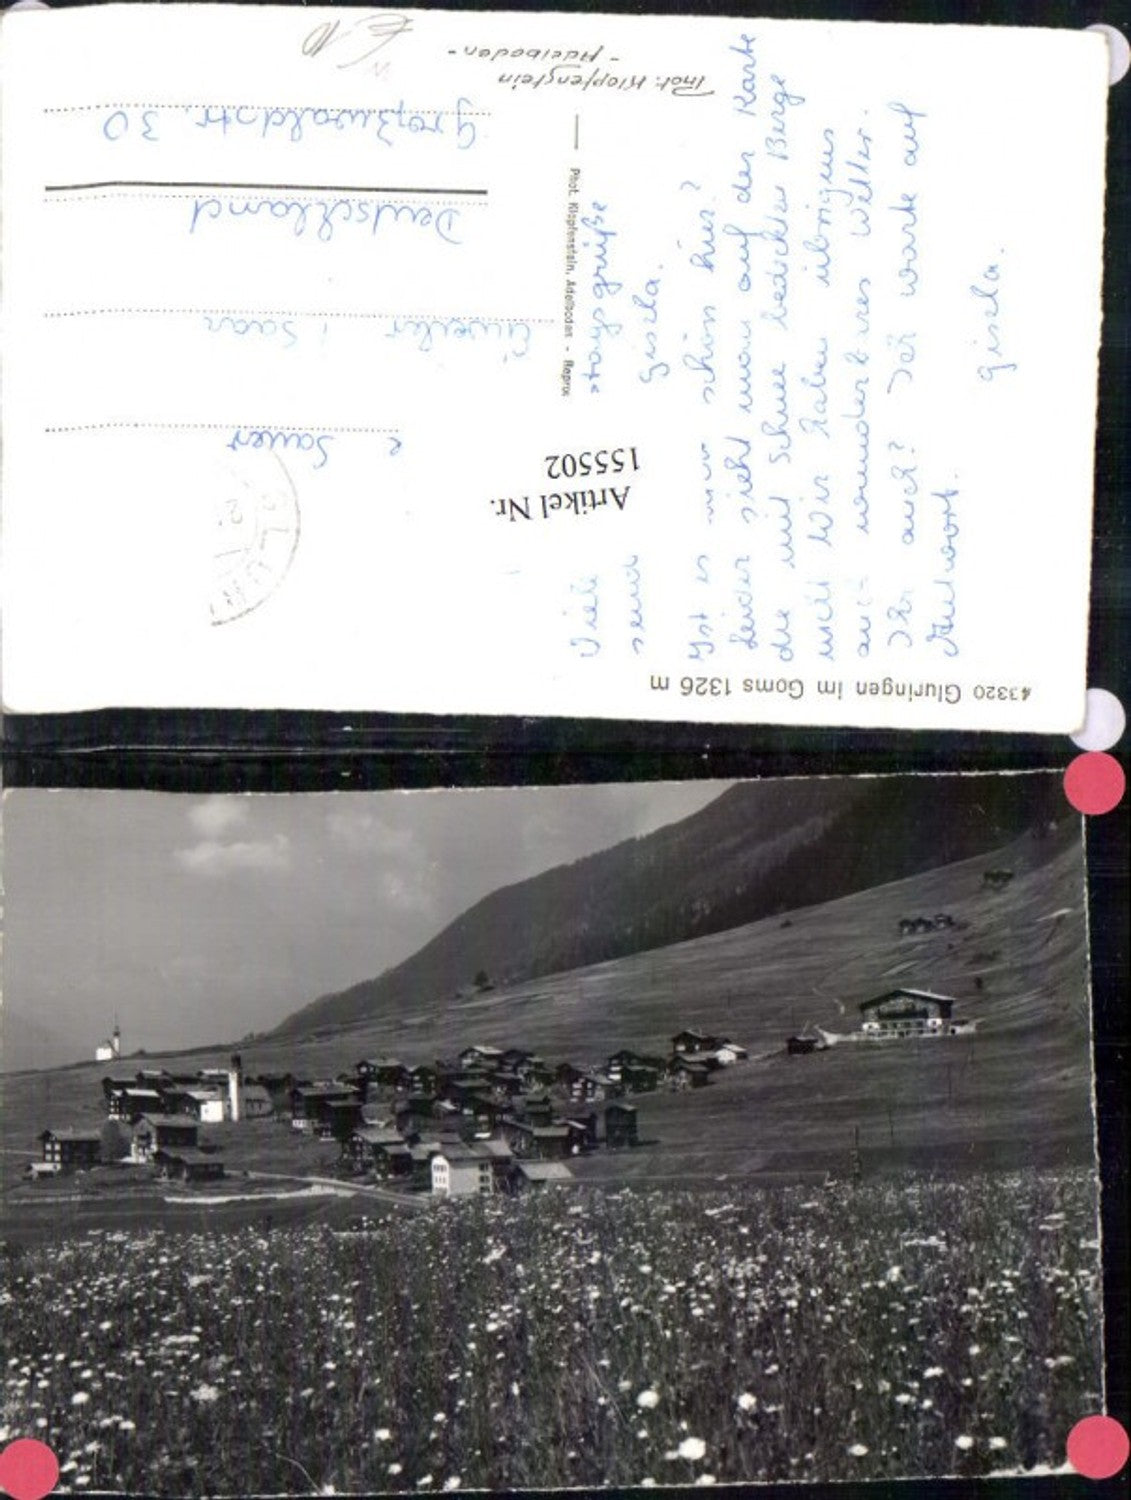 43320 Gluringen im Goms 1326 m
Viele
stagsgrüße
send
Gisela.
Ist es nun schön hier?
Leider sieht man auf der Karte
die mit Schnee bedeckten Berge
nicht. Wir haben übrigens
wunderbares Wetter.
Ihr auch? Ich warte auf
Antwort.
Gisela.
Phot. Klopfenstein, Adelboden - Repro
Artikel Nr.
155502
e Sauer
i Saar
Deutschland
Großwaldstr. 30
Phot: Klopfenstein
- Adelboden -
€ 10